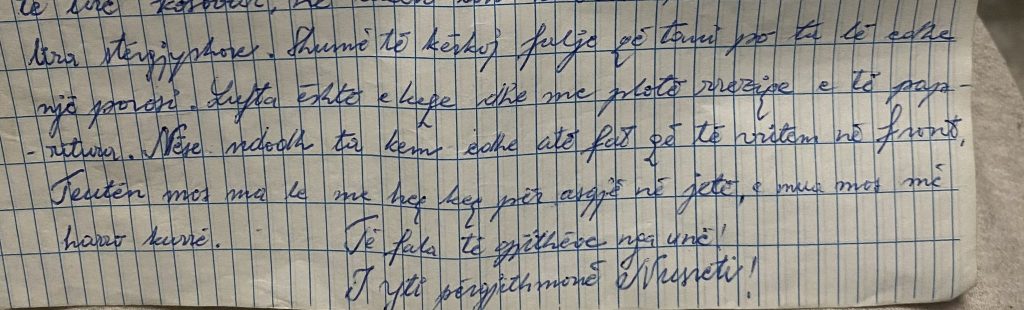 të lirë Kosovën, në
Shumë të kërkoj falje që tani po ta lë edhe
një porosi. Lufta është e keqe dhe me plotë rreziqe e të pap-
-ritura. Nëse ndodh ta kem edhe atë fat që të vritem në front,
Teutën mos ma le me heq keq për asgjë në jetë, e mua mos më
harro kurrë. Të fala të gjithëve nga unë!
I yti përgjithmonë Nusreti!